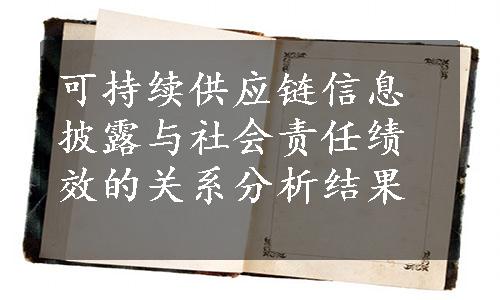 可持续供应链信息
披露与社会责任绩
效的关系分析结果